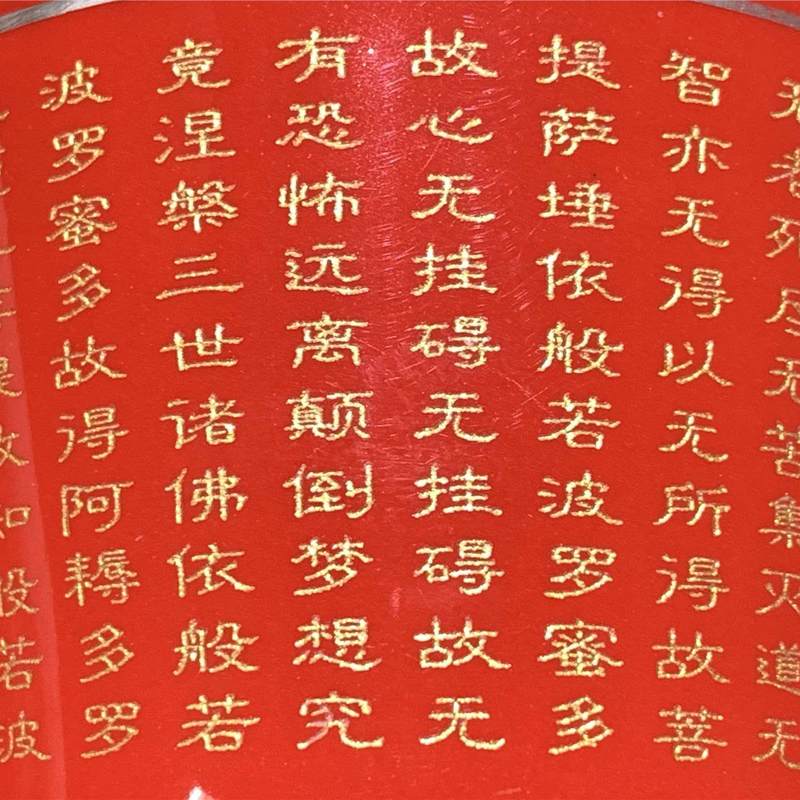 老死尽无苦集灭道无
智亦无得以无所得故菩
提萨埵依般若波罗蜜多
故心无挂碍无挂碍故无
有恐怖远离颠倒梦想究
竟涅槃三世诸佛依般若
波罗蜜多故得阿耨多罗
故知般若波